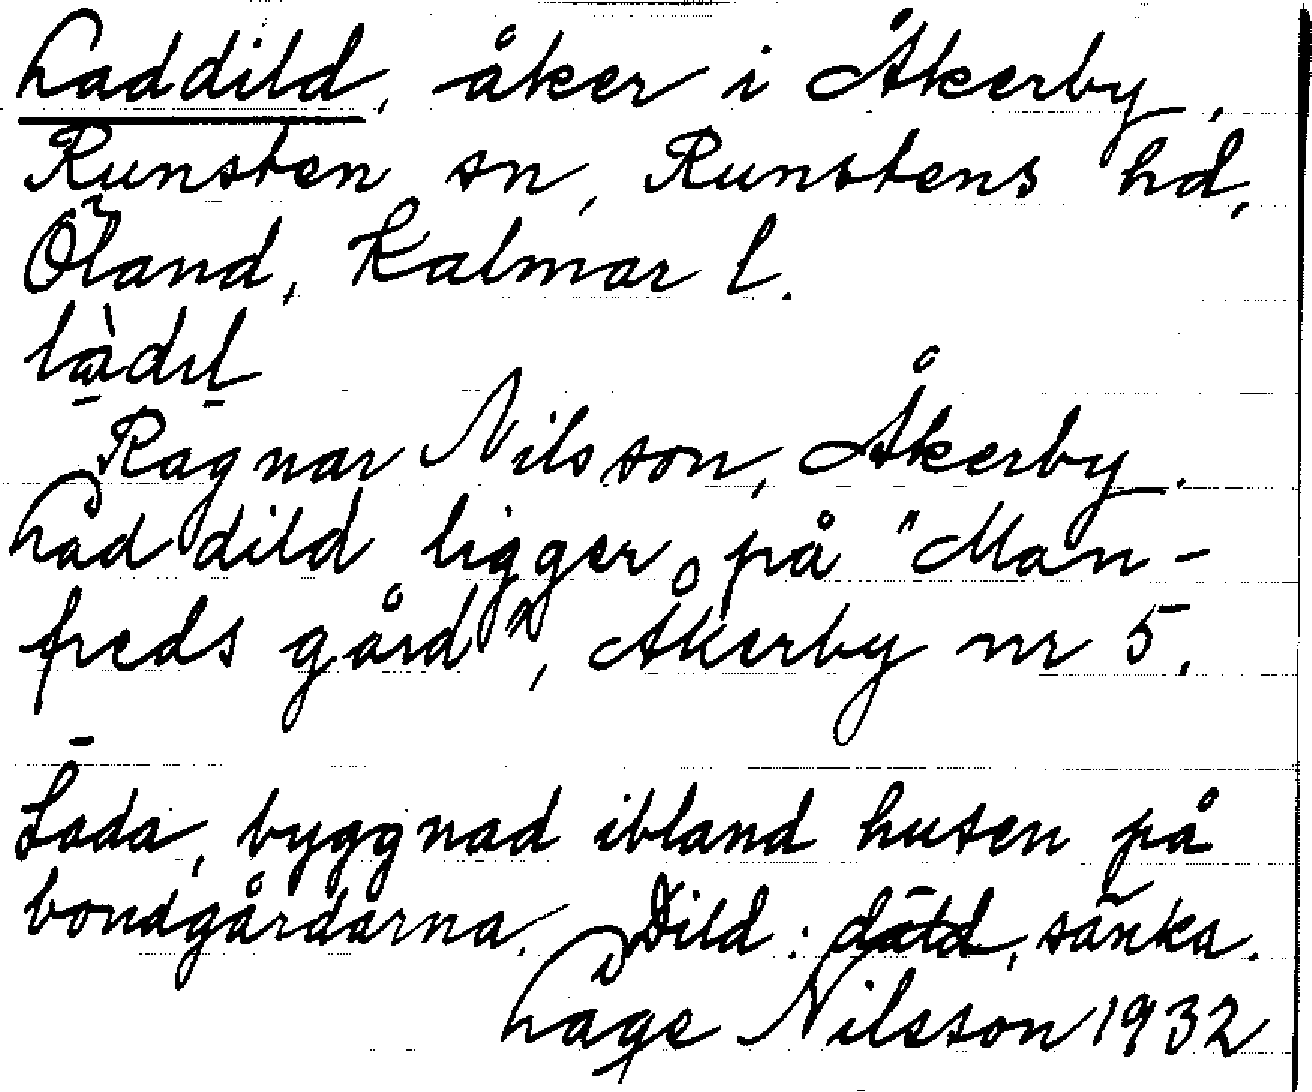 Laddild, åker i Åkerby,
Runsten sn, Runstens hd,
Öland, Kalmar l.
Ragnar Nilsson, Åkerby.
Laddild ligger på "Man-
freds gård", Åkerby nr 5.
Lada, byggnad ibland husen på
bondgårdarna. Dild: däld, sänka.
Lage Nilsson 1932